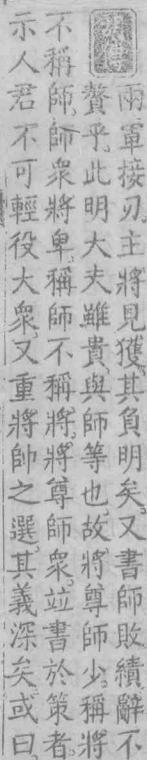 兩軍接刃主將見獲其負明矣又書師敗績辭不
贅乎此明大夫雖貴與師等也故將尊師少稱將
不稱師師衆將卑稱師不稱將將尊師衆竝書於策者
示人君不可輕役大衆又重將帥之選其義深矣或曰